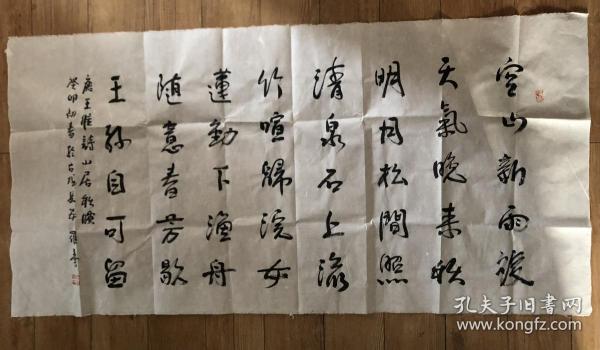 空山新雨後
天氣晚来秋
明月松間照
清泉石上流
竹喧歸浣女
蓮動下漁舟
随意春芳歇
王孫自可留
唐王維詩山居秋暝
癸卯初春於古都長安
孔夫子旧书网
www.kongfz.com